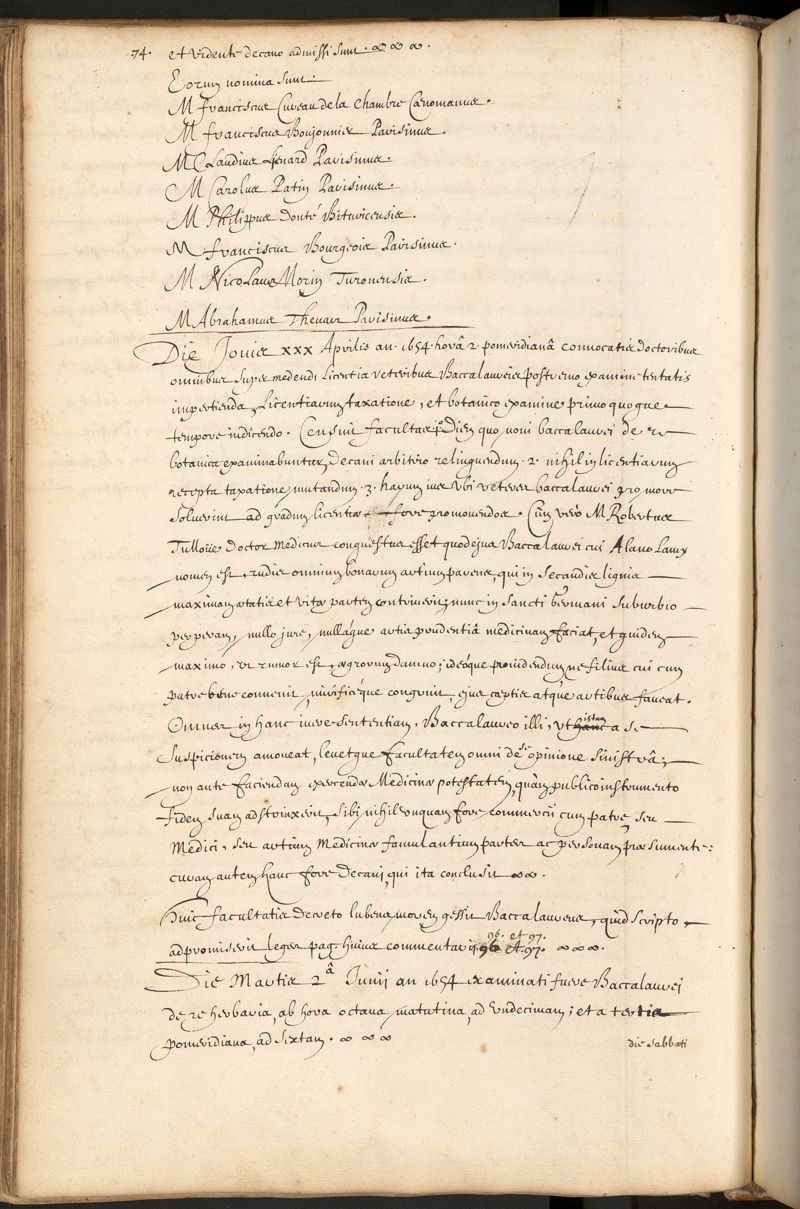 74. et vidente decano admissi sunt. ∞ ∞ ∞.
Eorum nomina sunt.
M franciscus Cureau de la Chambre Cænomanus.
M franciscus Boujonnier Parisinus.
M Claudius Lienard Parisinus.
M Carolus Patin Parisinus.
M Philippus Donté Bituricensis.
M franciscus Bourgeois Parisinus.
M Nicolaus Morin Turonensis.
M Abrahamus Thevart Parisinus.
Die Jovis xxx Aprilis an. 1654. horâ 2. pomeridianâ convocatis doctoribus
omnibus super modendi Licentia veteribus Baccalaureis postremo examine tentatis
impertienda, Licentiarum taxatione, et botanico examine primo quoque
tempore indicendo. Censuit facultas 1o. Diem quo novi baccalaurei de re
botanica examinabuntur, decani arbitrio relinquendum. 2. nihil in licentiarum
recepta taxatione mutandum. 3. harum ubi veteres baccalaurei
solverint ad gradum licentiæ fore promovendos. Cum verò M. Robertus
Tulloüe Doctor Medicus conquestus esset quod ejus Baccalaurei cui Alano Lamy
nomen est, rudis omnium bonarum artium parens, qui in secandis lignis
maximam ætatis et vitæ partem contriverit, nunc in Sancti Germani suburbio
perperam, nullo jure, nullâque artis prudentiâ medicinam faciat, et quidem
maximo, ut rumor est, ægrorum damno; ideóque providendum ne filius cui cum
patre bene convenit, mirificéque congruit, ejus cæptis atque artibus faveat.
Omnes in hanc ivere sententiam, Baccalaureo illi, ut hanc istam a se
suspicionem amoveat, levetque facultatem omni de se opinione sinistrâ,
non ante faciendam exercendæ Medicinæ potestatem, quàm publico instrumento
fidem suam adstrinxerit, sibi nihil unquam fore commercii cum patre, seu
Medici, seu artium Medicinæ famulantium partes ac personam præsumente:
curam autem hanc fore Decani, qui ita conclusit ∞ ∞.
Huic facultatis decreto lubens morem gessit Baccalaureus, quid scripto
adpromiserit leges pag. huius commentarij 96 et 97. 96. et 97. ∞ ∞ ∞.
Die Martis 2â Junij an 1654 examinati fuere Baccalaurei
de re herbaria, ab hora octava matutina, ad undecimam; et a tertia
pomeridiana, ad sextam. ∞ ∞ ∞
die sabbati